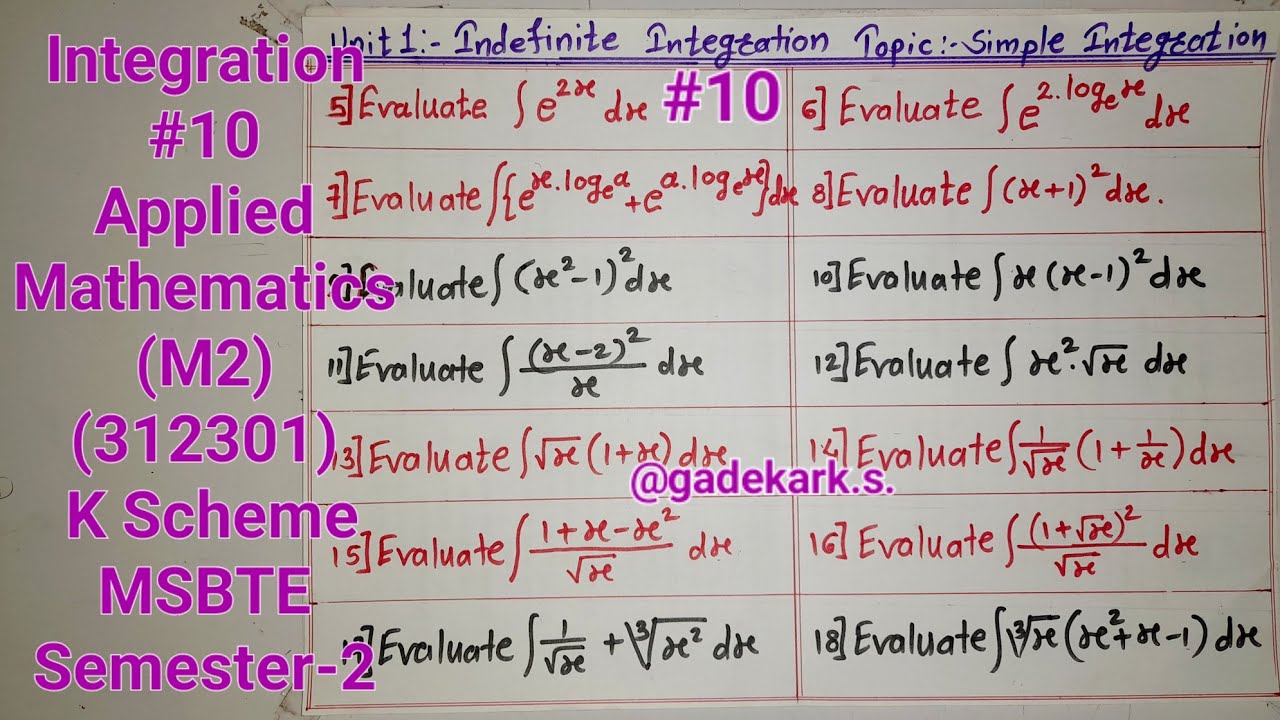 Integration
#10
Applied
Mathematics
(M2)
(312301)
K Scheme
MSBTE
Semester-2
Unit 1:- Indefinite Integration Topic:- Simple Integration
5] Evaluate ∫ e^{2x} dx
#10
6] Evaluate ∫ e^{2.log_e x} dx
7] Evaluate ∫{e^{x.log_e a} + e^{a.log_e x}} dx
8] Evaluate ∫ (x+1)² dx.
∫ (x²-1)² dx
10] Evaluate ∫ x (x-1)² dx
11] Evaluate ∫ (x-2)²/x dx
12] Evaluate ∫ x².√x dx
13] Evaluate ∫ √x (1+x) dx
14] Evaluate ∫ 1/√x (1 + 1/x) dx
@gadekark.s.
15] Evaluate ∫ (1+x-x²)/√x dx
16] Evaluate ∫ (1+√x)²/√x dx
Evaluate ∫ 1/√x + ∛x² dx
18] Evaluate ∫ ∛x (x²+x-1) dx